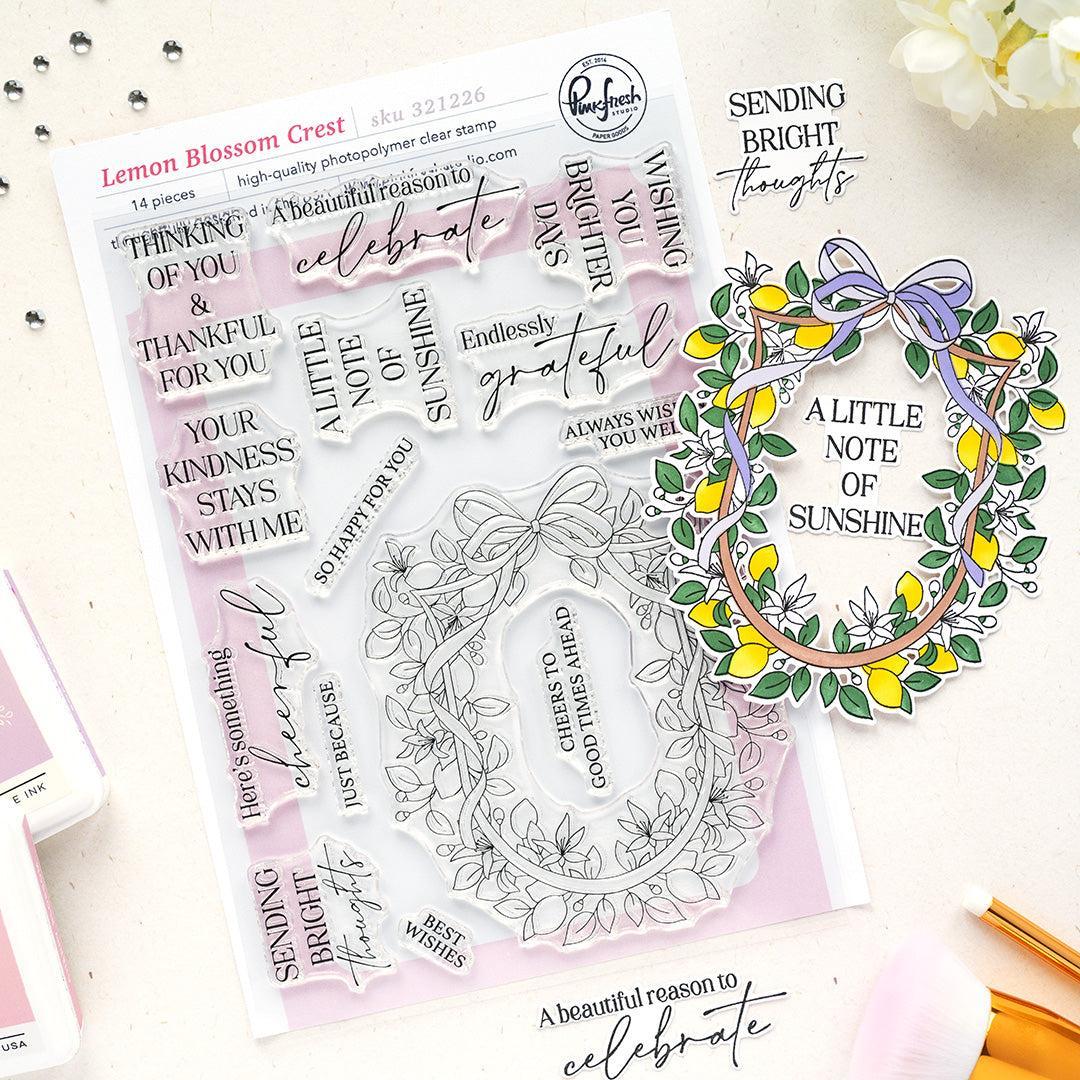 Lemon Blossom Crest
sku 321226
14 pieces
high-quality photopolymer clear stamp
EST. 2014
Pinkfresh
STUDIO
PAPER GOODS
A beautiful reason to
celebrate
WISHING
YOU
BRIGHTER
DAYS
THINKING
OF YOU
&
THANKFUL
FOR YOU
A LITTLE
NOTE
OF
SUNSHINE
Endlessly
grateful
ALWAYS WISH
YOU WEL
YOUR
KINDNESS
STAYS
WITH ME
SO HAPPY FOR YOU
Here's something
cheerful
JUST BECAUSE
CHEERS TO
GOOD TIMES AHEAD
SENDING
BRIGHT
thoughts
BEST
WISHES
SENDING
BRIGHT
thoughts
A LITTLE
NOTE
OF
SUNSHINE
A beautiful reason to
celebrate
E INK
USA